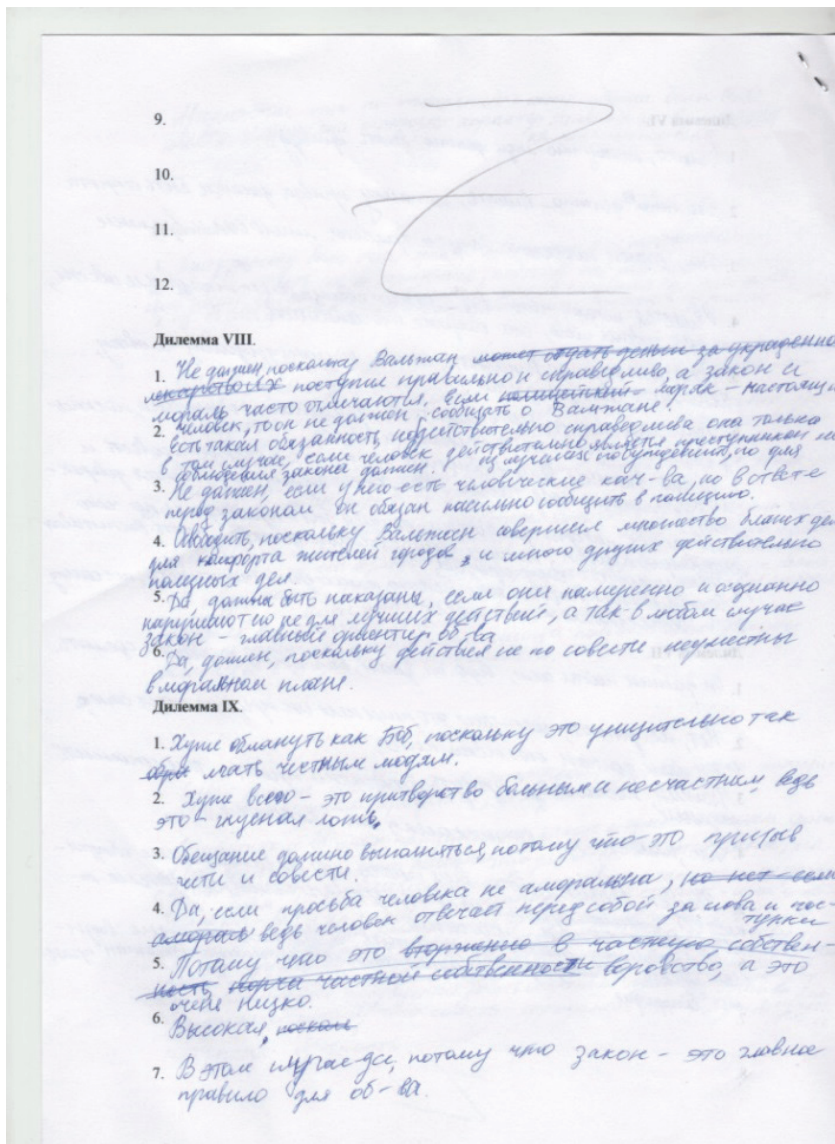 9.
10.
11.
12.
Дилемма VIII.
1. Не должен, поскольку Вальжан может отдать деньги за украденно
лекарство и х поступил правильно и справедливо, а закон и
мораль часто отличаются. Если полицейский моряк – настоящи
2. человек, то он не должен сообщать о Вальжане.
есть такая обязанность, но действительно справедлива она только
в том случае, если человек действительно является преступником
соблюдения закона должен. из лучших побуждений, но для
3. Не должен, если у него есть человеческие кач-ва, но в ответ-е
перед законом он обязан насильно сообщить в полицию.
4. Освободить, поскольку Вальжан совершил множество благих де
для комфорта жителей городов, и много других действительно
полезных дел.
5. Да, должны быть наказаны, если они намеренно и осознанно
нарушают но не для лучших действий, а так в любом случае
закон – главный ориентир об-ва
6. Да, должен, поскольку действия не по совести неуместны
в моральном плане.
Дилемма IX.
1. Хуже обмануть как Боб, поскольку это унизительно так
обры лгать честным людям.
2. Хуже всего – это притворство больным и несчастным, ведь
это – гнусная ложь.
3. Обещание должно выполняться, потому что это призыв
чести и совести.
4. Да, если просьба человека не аморальна, но нет если
аморал ведь человек отвечает перед собой за слова и пос-
тупки
5. Потому что это вторжение в частную собствен-
ность, порча частной собственности воровство, а это
очень низко.
6. Высокая, поскольк
7. В этом случае да, потому что закон – это главное
правило для об-ва.